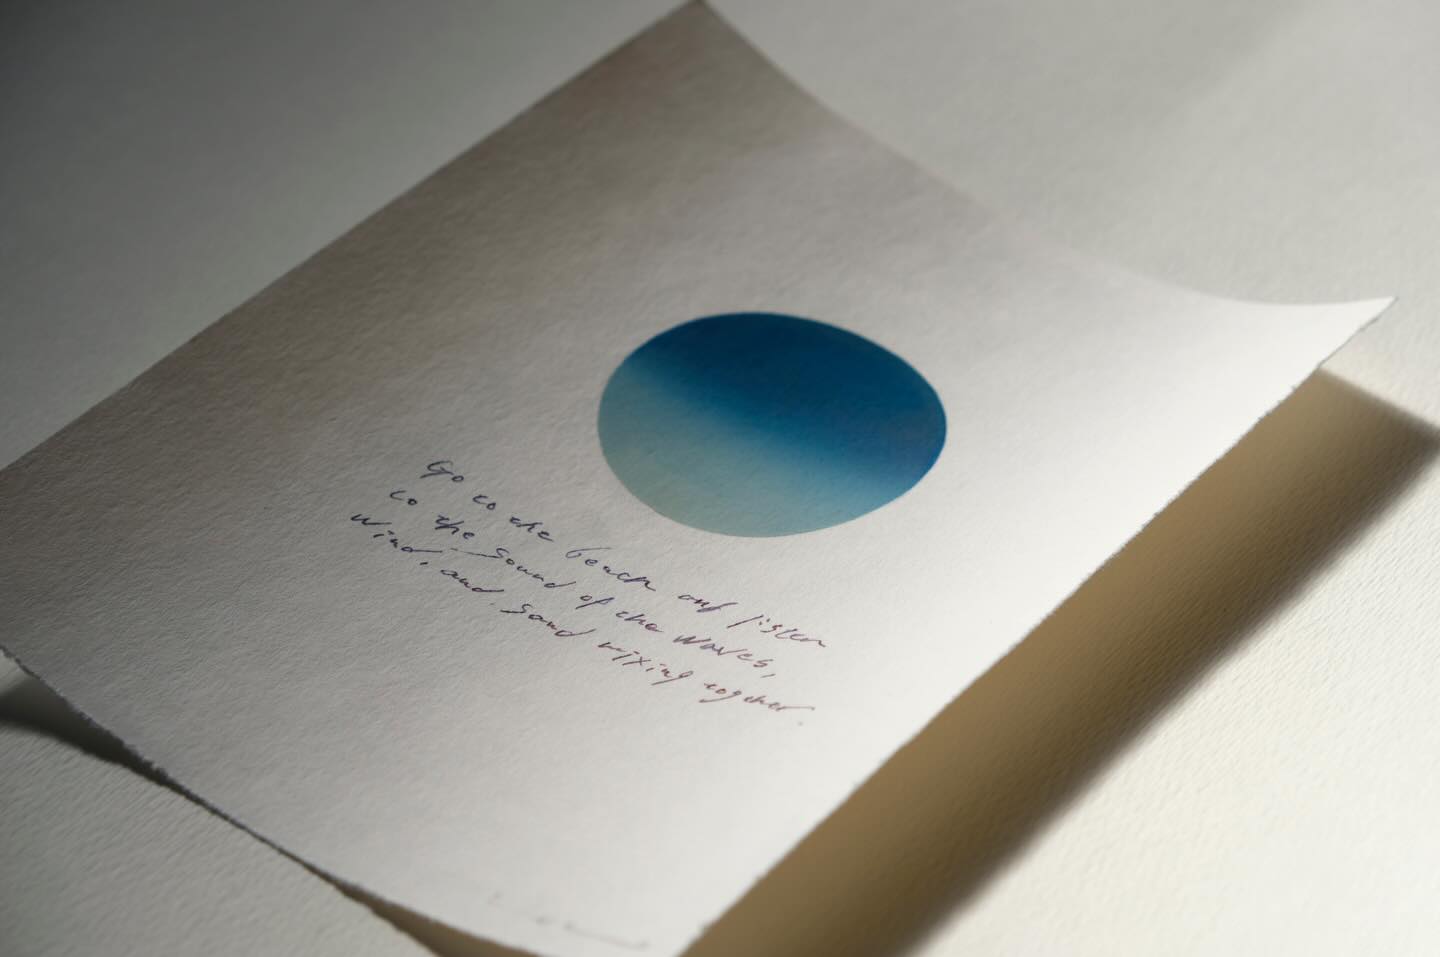 Go to the beach and listen
to the sound of the waves,
wind, and sand mixing together.